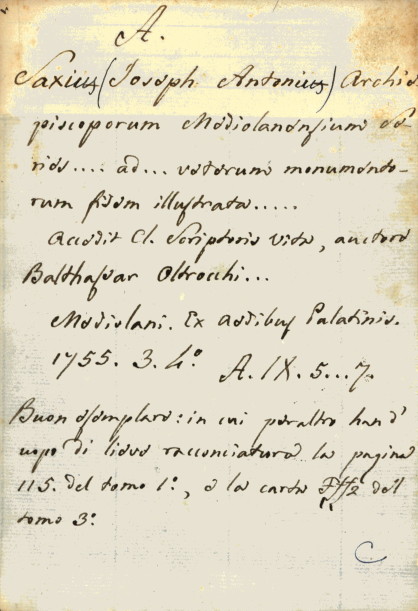 A.
Saxius (Joseph Antonius) Archie
piscoporum Mediolanensium se-
ries.... ad... veterum monumento-
rum fidem illustrata.....
Accedit Cl. Scriptoris Vita, auctore
Balthassar Oltrocchi...
Mediolani. Ex Aedibus Palatinis.
1755. 3. 4.º A. IX. 5...7.
Buon esemplare: in cui peraltro han d'
uopo di lieve racconciatura la pagina
115. del tomo 1º, e la carta Fff2 del
tomo 3º
C